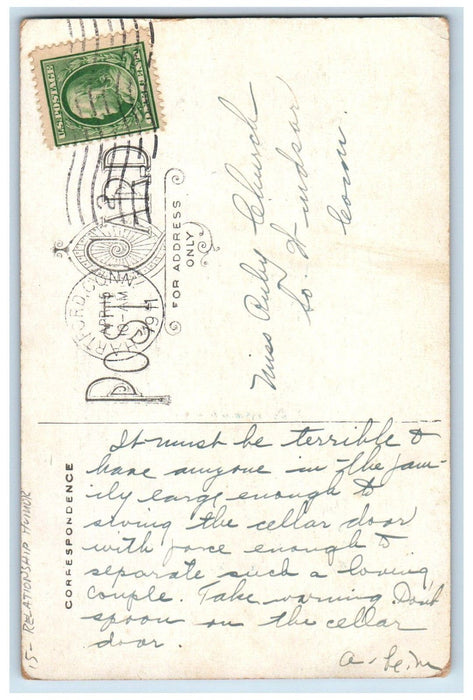 U.S. POSTAGE
HARTFORD, CONN.
APR 15
10-AM
1911
POST CARD
FOR ADDRESS
ONLY
Miss Ruby Church
So. Windsor
Conn.
CORRESPONDENCE
It must be terrible to
have anyone in the fam-
ily large enough to
swing the cellar door
with force enough to
separate such a loving
couple. Take warning. Don't
spoon on the cellar
door.
15- RELATIONSHIP HUMOR